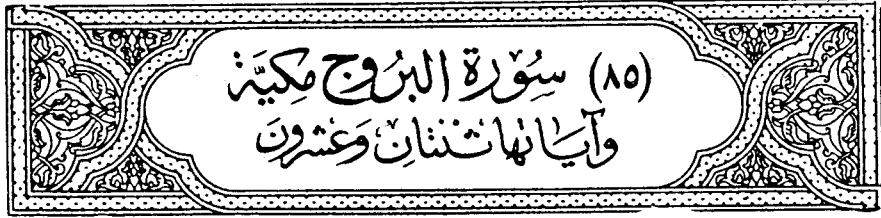 (٨٥) سُوْرَة البُرُوج مَكِيَّة
وَآيَاتهَا ثنتَانِ وَعشرُونَ